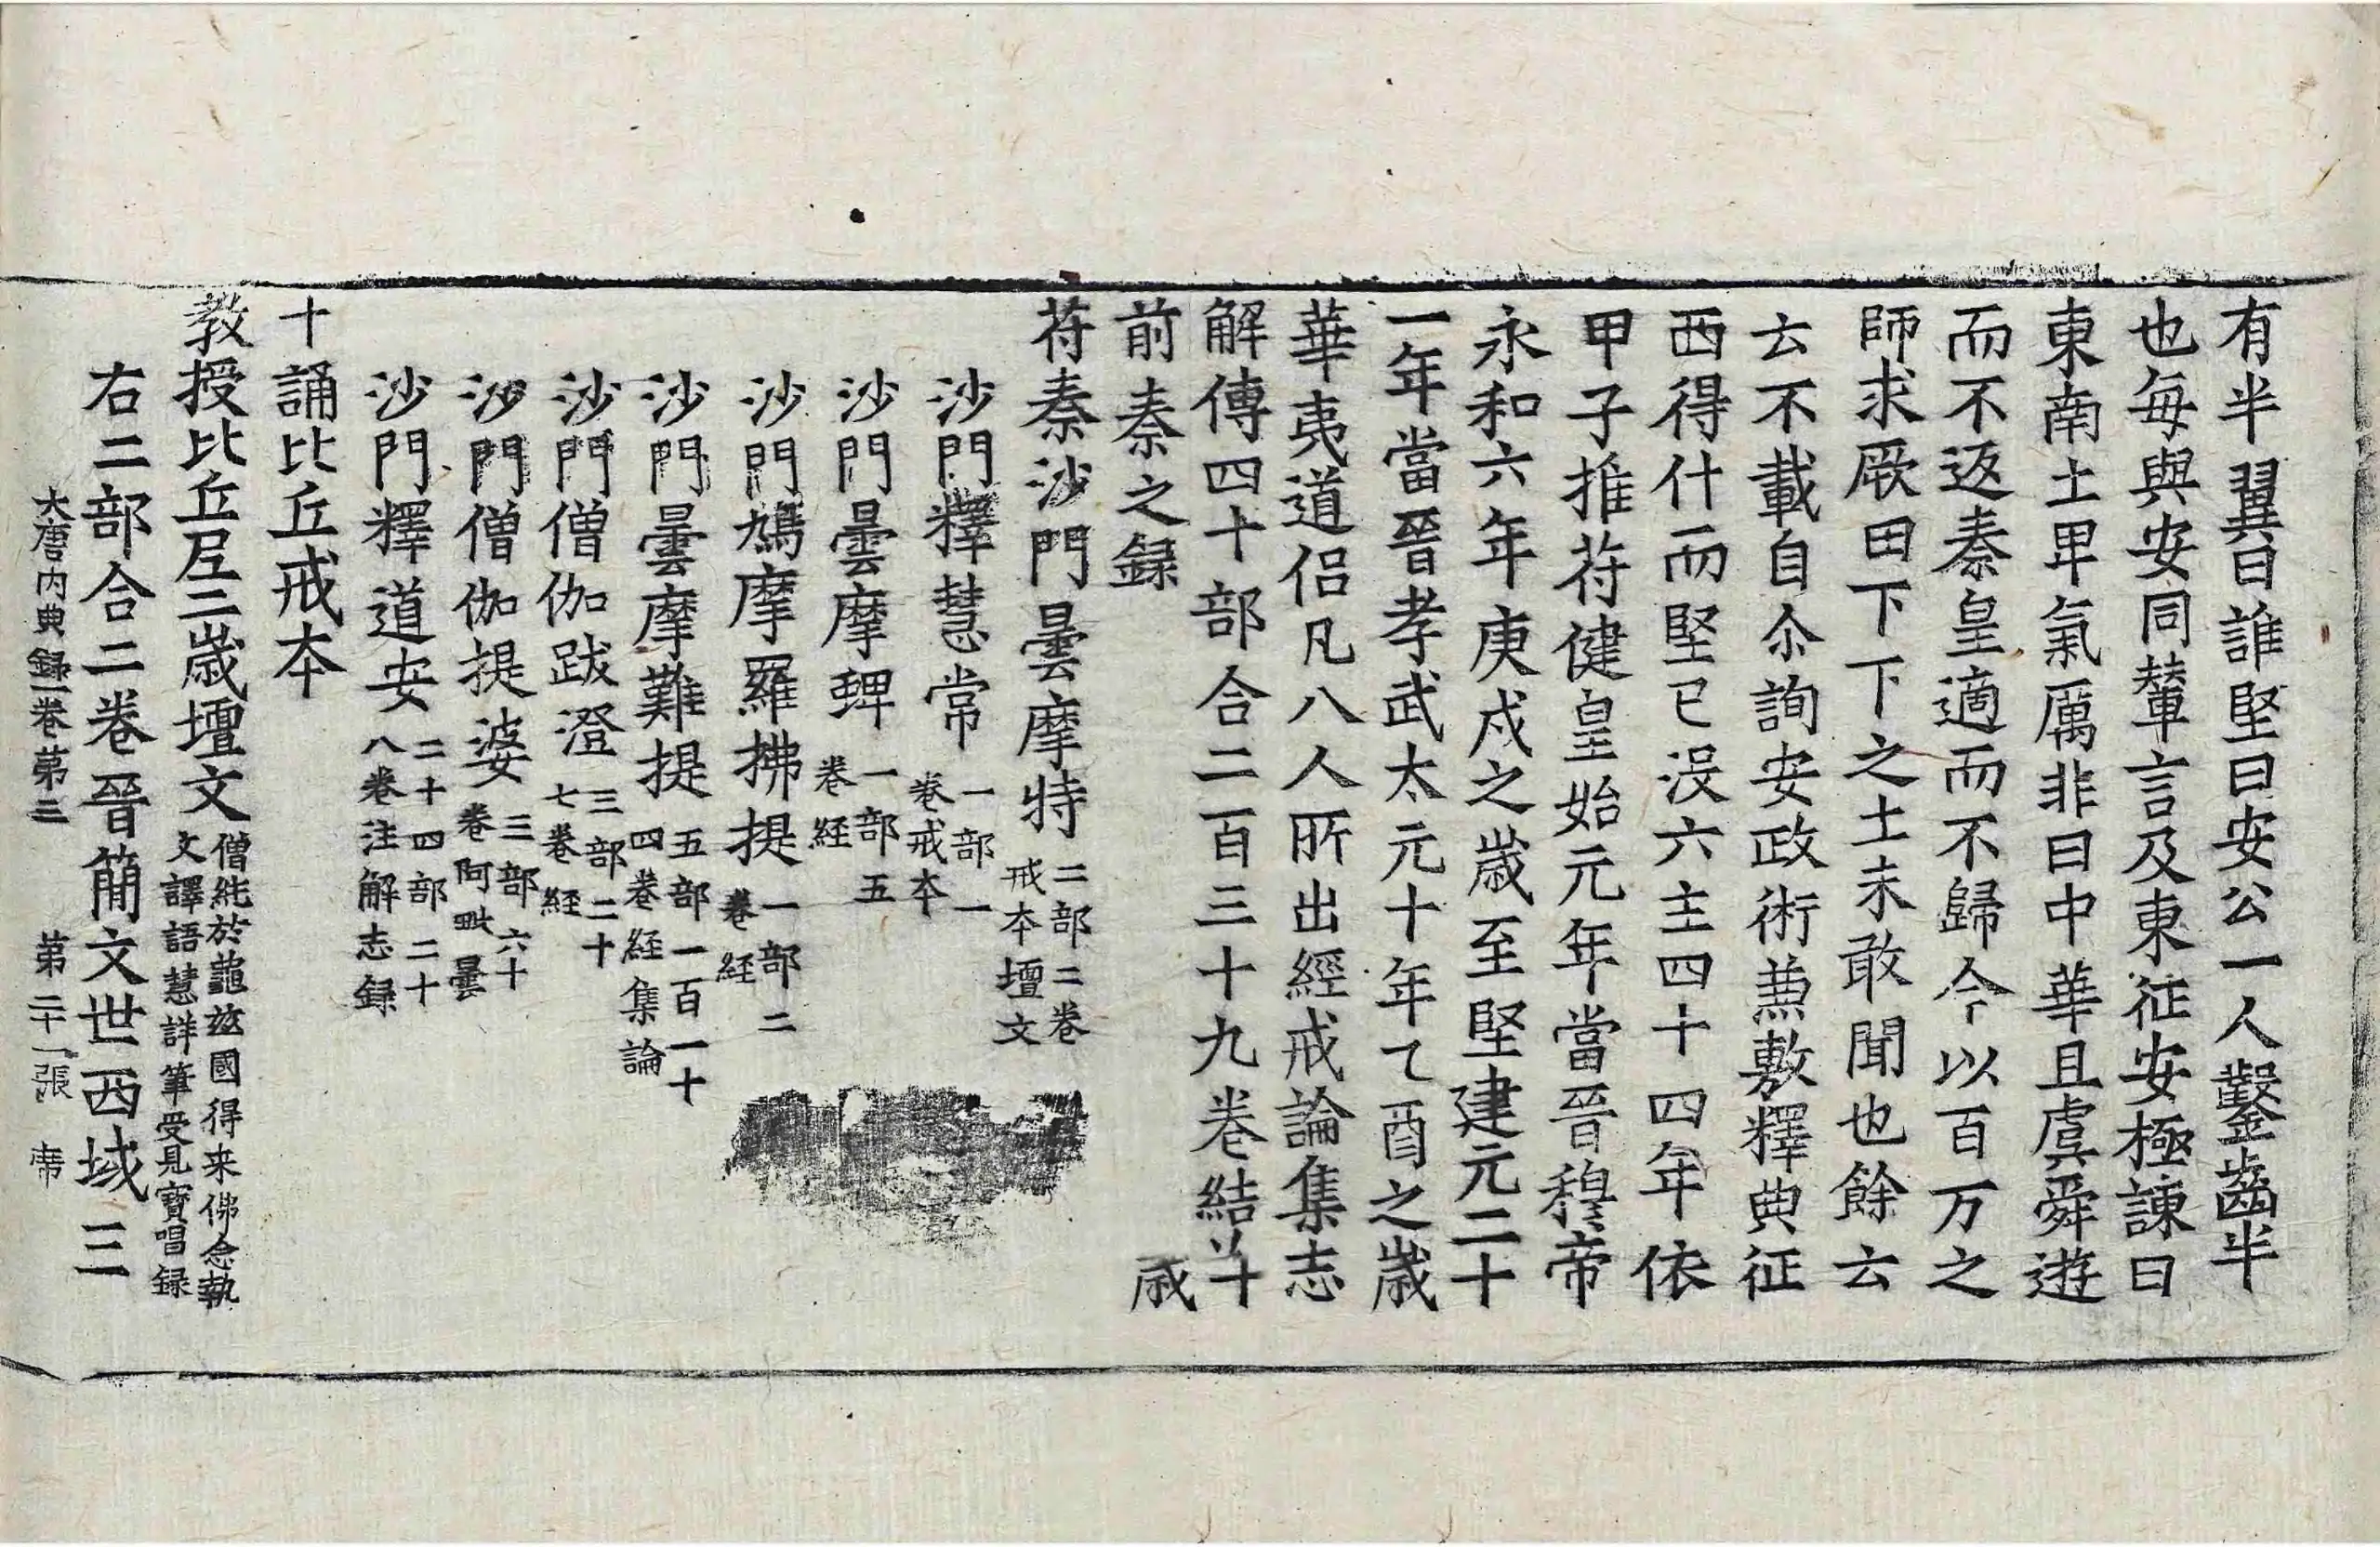 有半翼曰誰堅曰安公一人鑿齒半
也每與安同輦言及東征安極諫曰
東南土畢氣厲非曰中華且虞舜遊
而不返秦皇適而不歸今以百万之
師求厥田下下之土未敢聞也餘云
云不載自尒詢安政術兼敷釋典征
西得什而堅已没六主四十四年依
甲子推苻健皇始元年當晉穆帝
永和六年庚戌之歲至堅建元二十
一年當晉孝武太元十年乙酉之歲
華夷道侶凡八人所出經戒論集志
解傳四十部合二百三十九卷結並十
前秦之録 歲
苻秦沙門曇摩特 二部二卷
戒本壇文
沙門釋慧常 一部一
卷戒本
沙門曇摩蜱 一部五
卷経
沙門鳩摩羅拂提 一部二
卷経
沙門曇摩難提 五部一百一十
四卷経集論
沙門僧伽跋澄 三部二十
七卷経
沙門僧伽提婆 三部六十
卷阿毗曇
沙門釋道安 二十四部二十
八卷注解志録
十誦比丘戒本
教授比丘尼二歲壇文 僧純於龜兹國得来佛念執
文譯語慧詳筆受見寶唱録
右二部合二卷晉簡文世西域三
大唐内典録卷第三 第二十一張 席